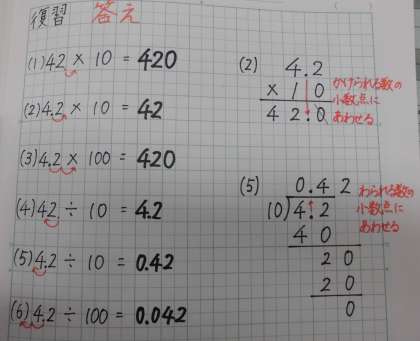 復習 答え
(1) 42 × 10 = 420
(2) 4.2 × 10 = 42
(3) 4.2 × 100 = 420
(4) 42 ÷ 10 = 4.2
(5) 4.2 ÷ 10 = 0.42
(6) 4.2 ÷ 100 = 0.042
(2) 4.2
× 10
42.0
かけられる数の
小数点に
あわせる
(5) 0.42
10)4.2
40
20
20
0
わられる数の
小数点に
あわせる